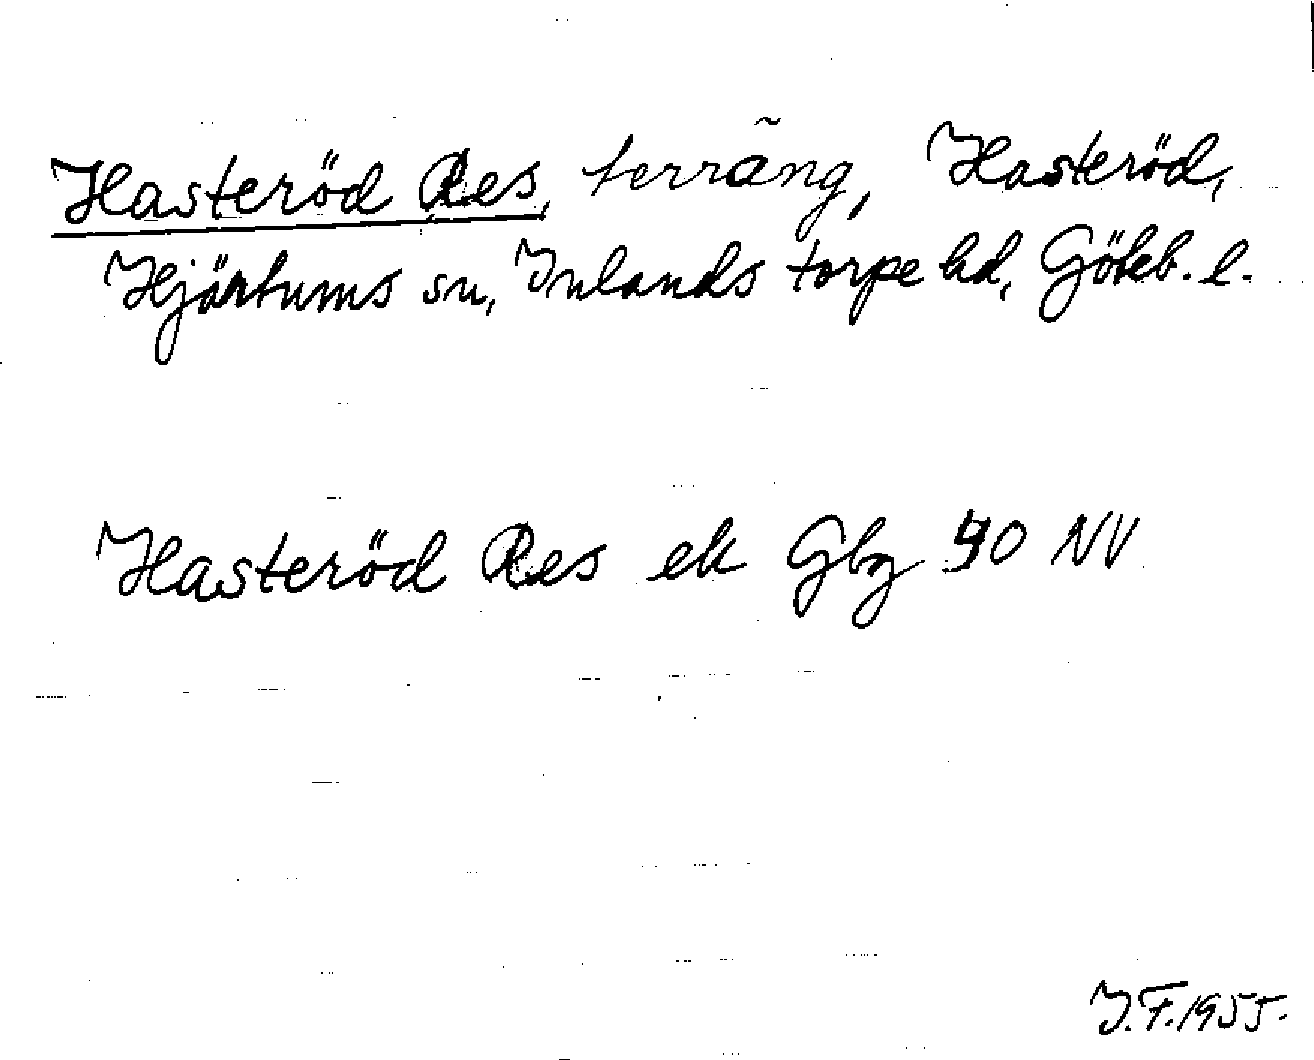 Hasteröd Res, terräng, Hasteröd,
Hjärtums sn, Inlands torpe hd, Göteb. l.
Hasteröd Res ek Gbg 90 NV
J.F. 1955.